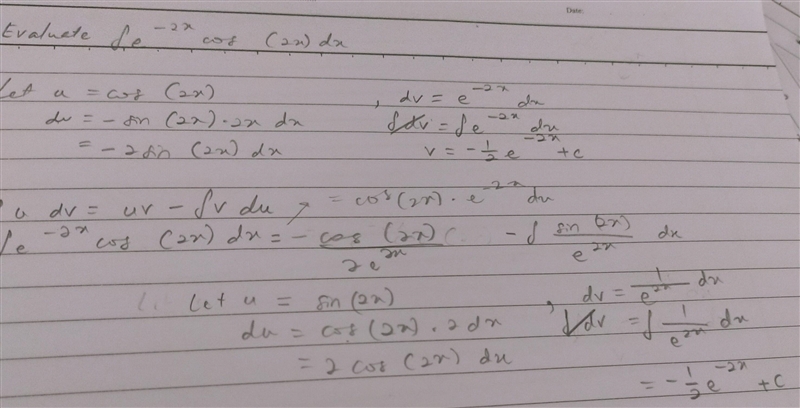 Date:
Evaluate ∫e^{-2x} cos (2x) dx
Let u = cos (2x) , dv = e^{-2x} dx
du = - sin (2x) · 2x dx ∫dv = ∫e^{-2x} dx
= - 2 sin (2x) dx v = -\frac{1}{2} e^{-2x} + c
u dv = uv - ∫v du, = cos(2x) · e^{-2x} dx
∫e^{-2x} cos (2x) dx = - \frac{cos (2x)}{2e^{2x}} - ∫ \frac{sin (2x)}{e^{2x}} dx
Let u = sin (2x) , dv = \frac{1}{e^{2x}} dx
du = cos (2x) · 2 dx ∫dv = ∫ \frac{1}{e^{2x}} dx
= 2 cos (2x) dx = -\frac{1}{2} e^{-2x} + c